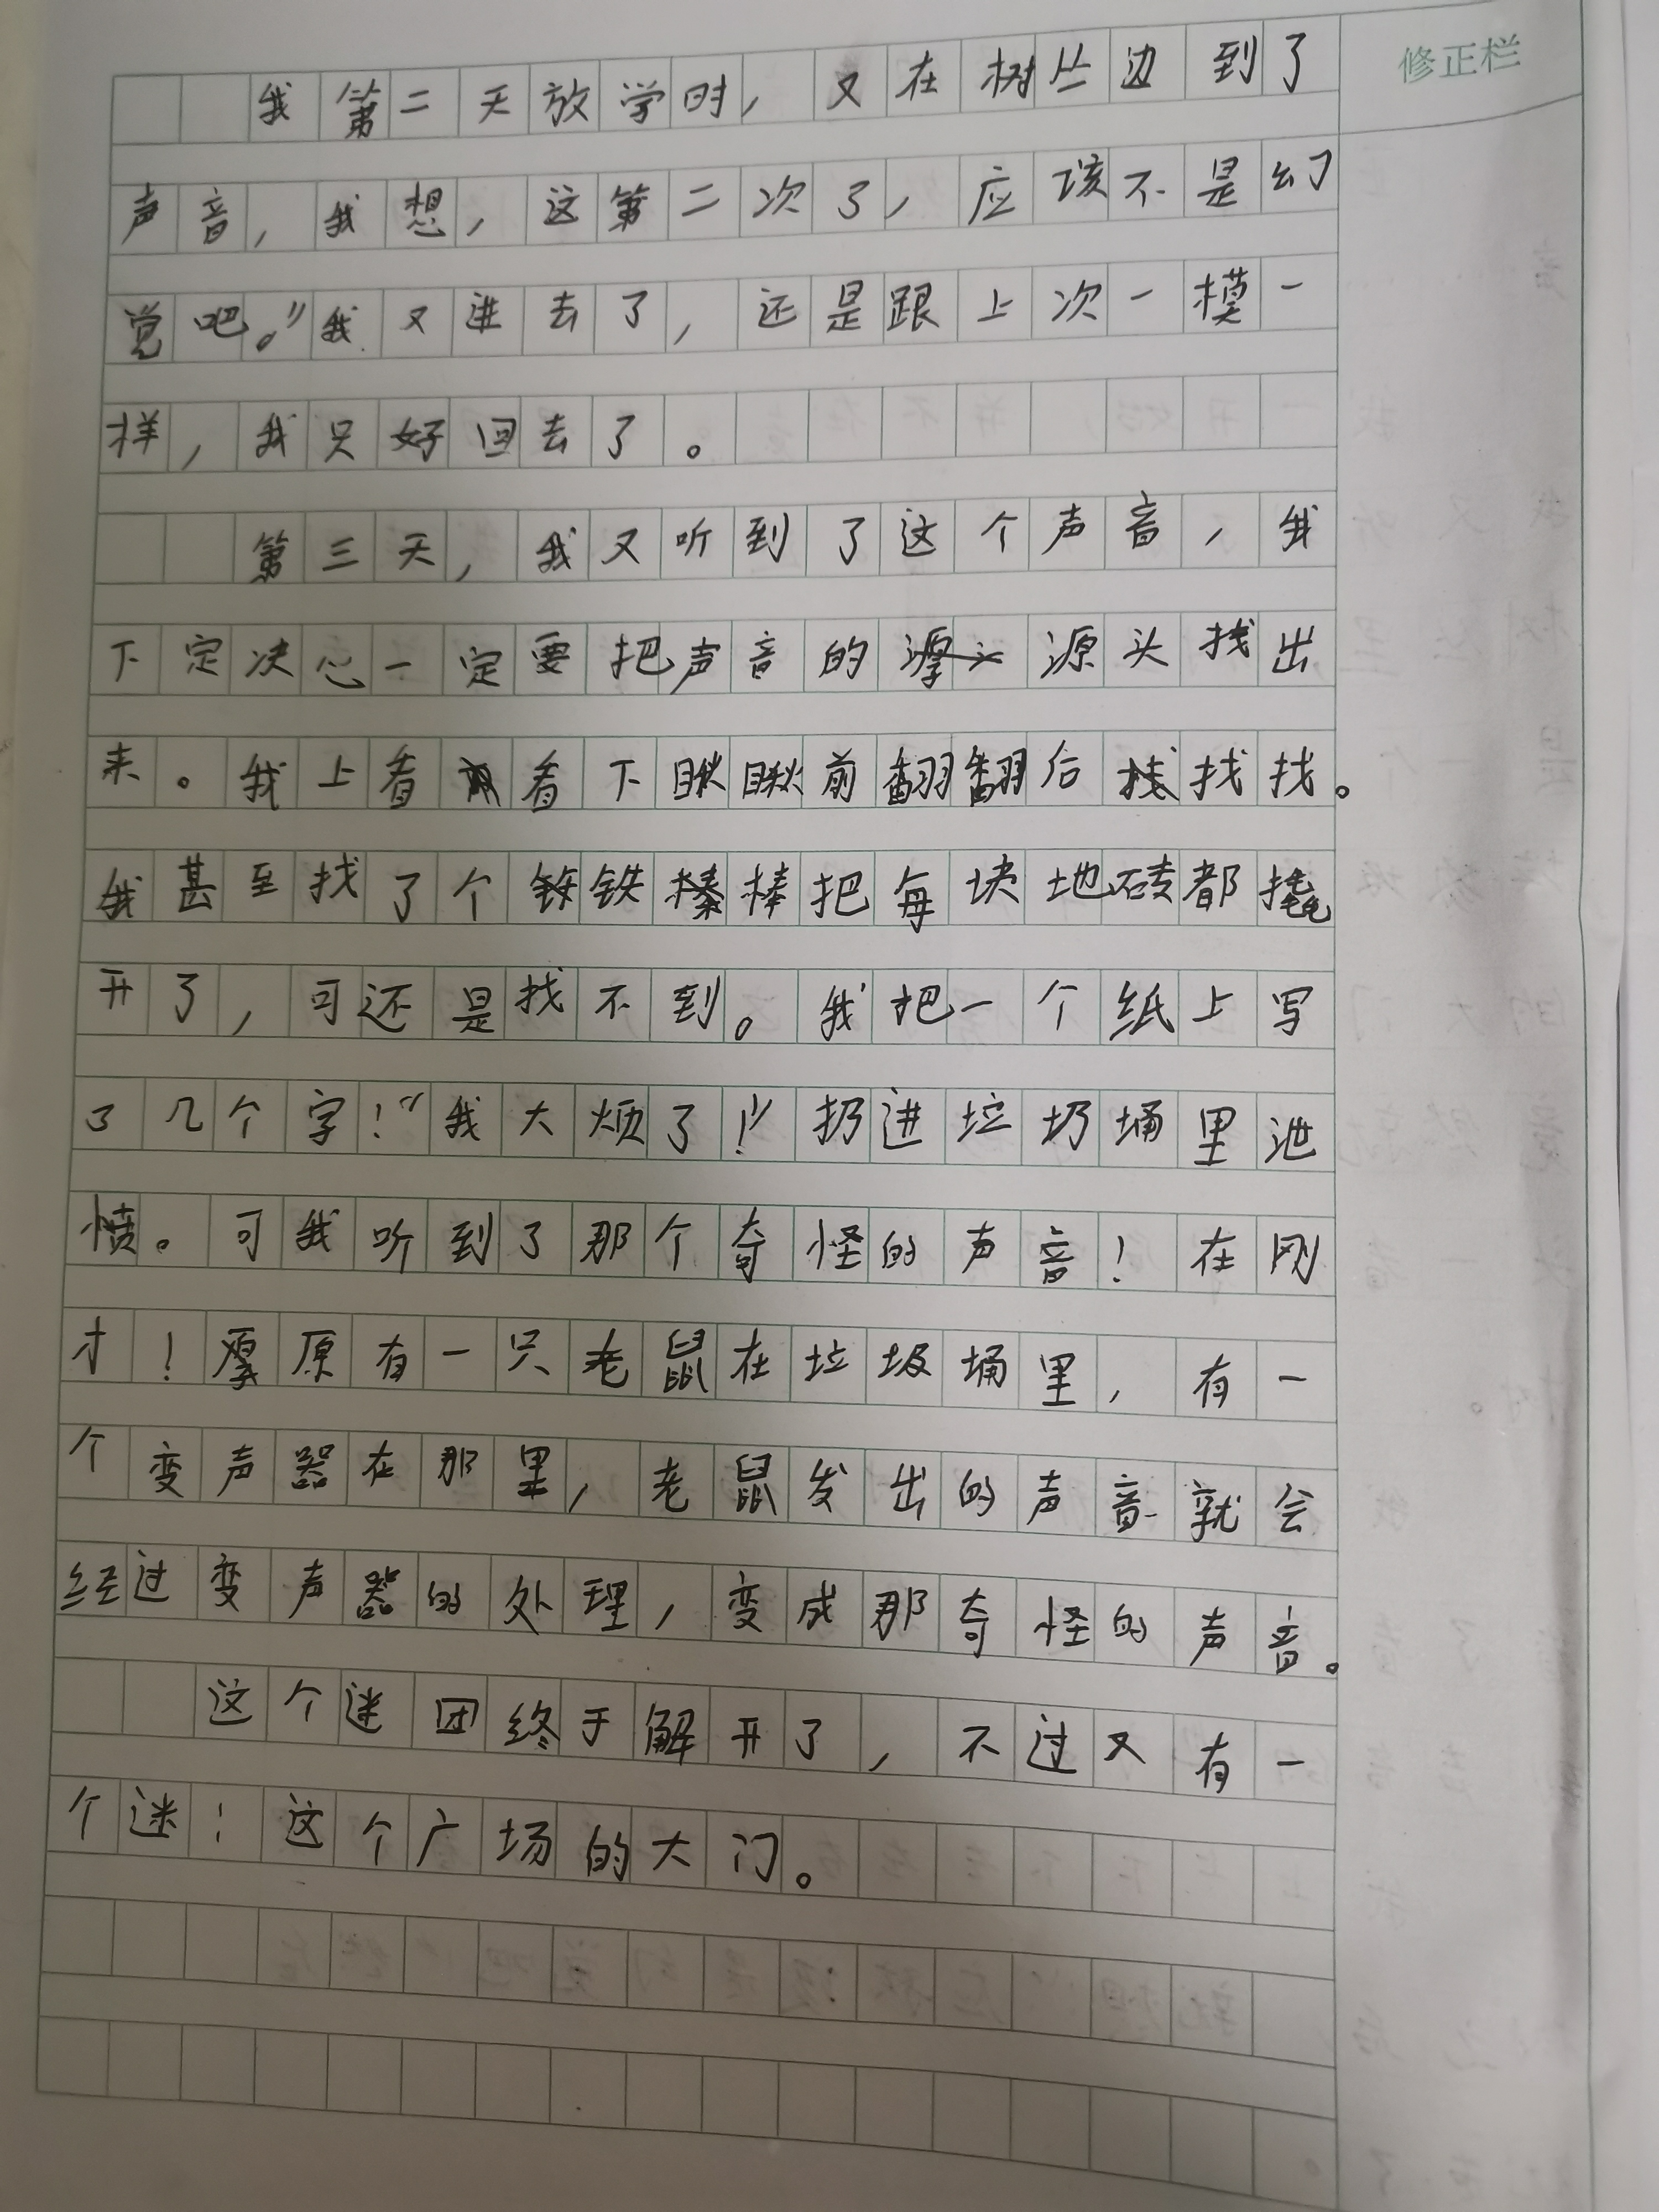 修正栏
我第二天放学时，又在树丛边到了
声音，我想，这第二次了，应该不是幻
觉吧。”我又进去了，还是跟上次一模一
样，我只好回去了。
第三天，我又听到了这个声音，我
下定决心一定要把声音的源头找出
来。我上看看下瞅瞅前翻翻后找找。
我甚至找了个铁棒把每块地砖都撬
开了，可还是找不到。我把一个纸上写
了几个字！“我大烦了！”扔进垃圾桶里泄
愤。可我听到了那个奇怪的声音！在刚
才！原有一只老鼠在垃圾桶里，有一
个变声器在那里，老鼠发出的声音就会
经过变声器的处理，变成那奇怪的声音。
这个迷团终于解开了，不过又有一
个迷：这个广场的大门。